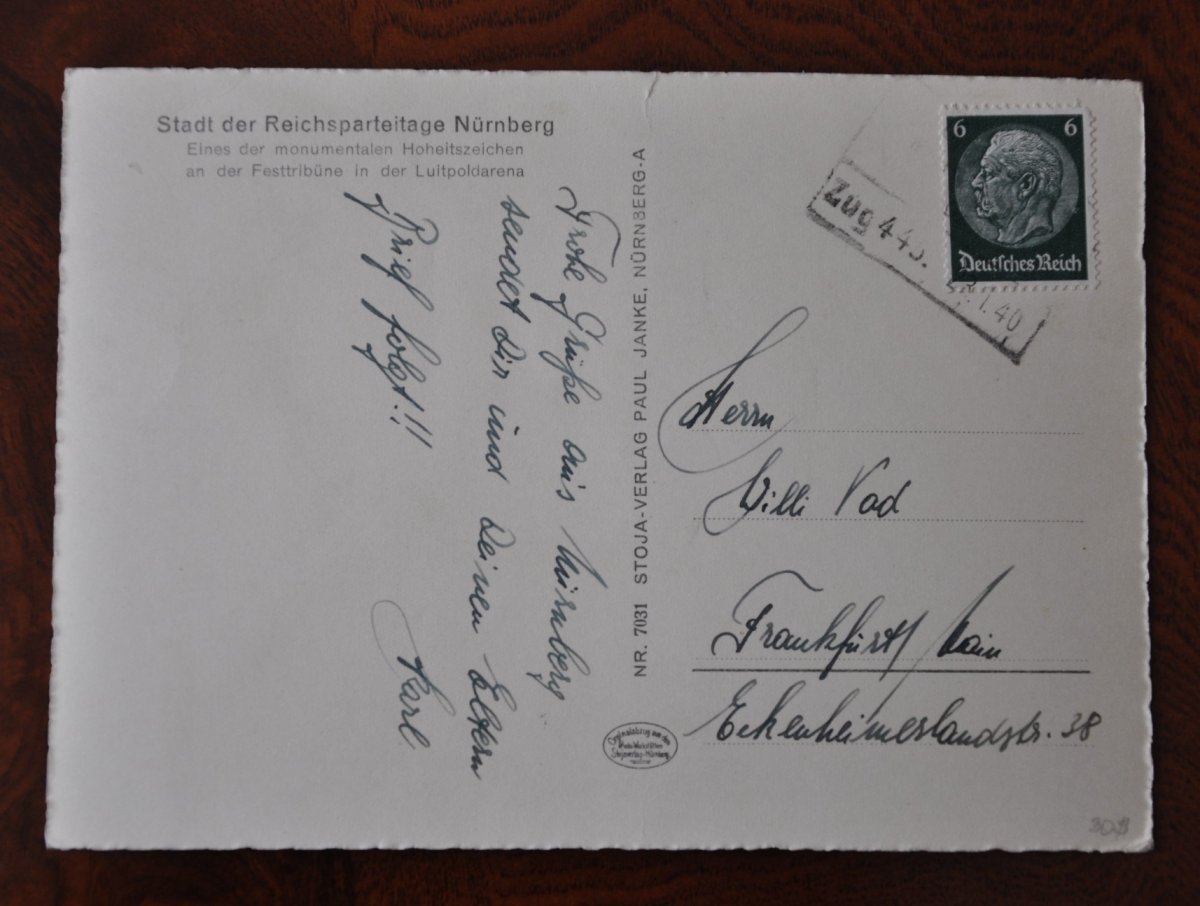 Stadt der Reichsparteitage Nürnberg
Eines der monumentalen Hoheitszeichen
an der Festtribüne in der Luitpoldarena
Frohe Grüße aus Nürnberg
sendet dir und deinen Eltern
Karl
Brief folgt!!
NR. 7031 STOJA-VERLAG PAUL JANKE, NÜRNBERG-A
6 6
Deutsches Reich
Zug 443.
1.40
Herrn
Willi Vad
Frankfurt/Main
Eckenheimerlandstr. 38
Originalabzug aus den
Stojaverlag-Nürnberg
30$